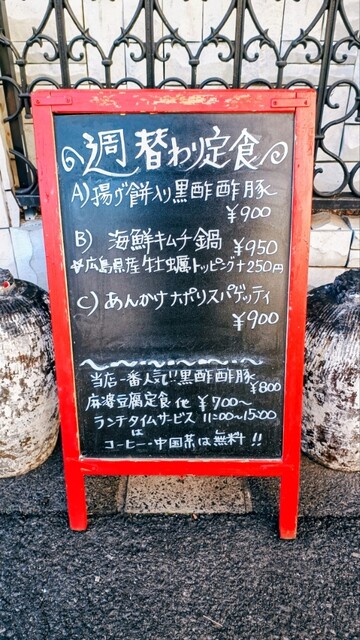 週替わり定食
A)揚げ餅入り黒酢酢豚
¥900
B) 海鮮キムチ鍋 ¥950
☆広島県産牡蠣トッピング+250円
C)あんかけナポリスパゲッティ
¥900
当店一番人気!!黒酢酢豚
¥800
麻婆豆腐定食 他 ¥700〜
ランチタイムサービス 11:00〜15:00
は
コーヒー・中国茶は無料!!